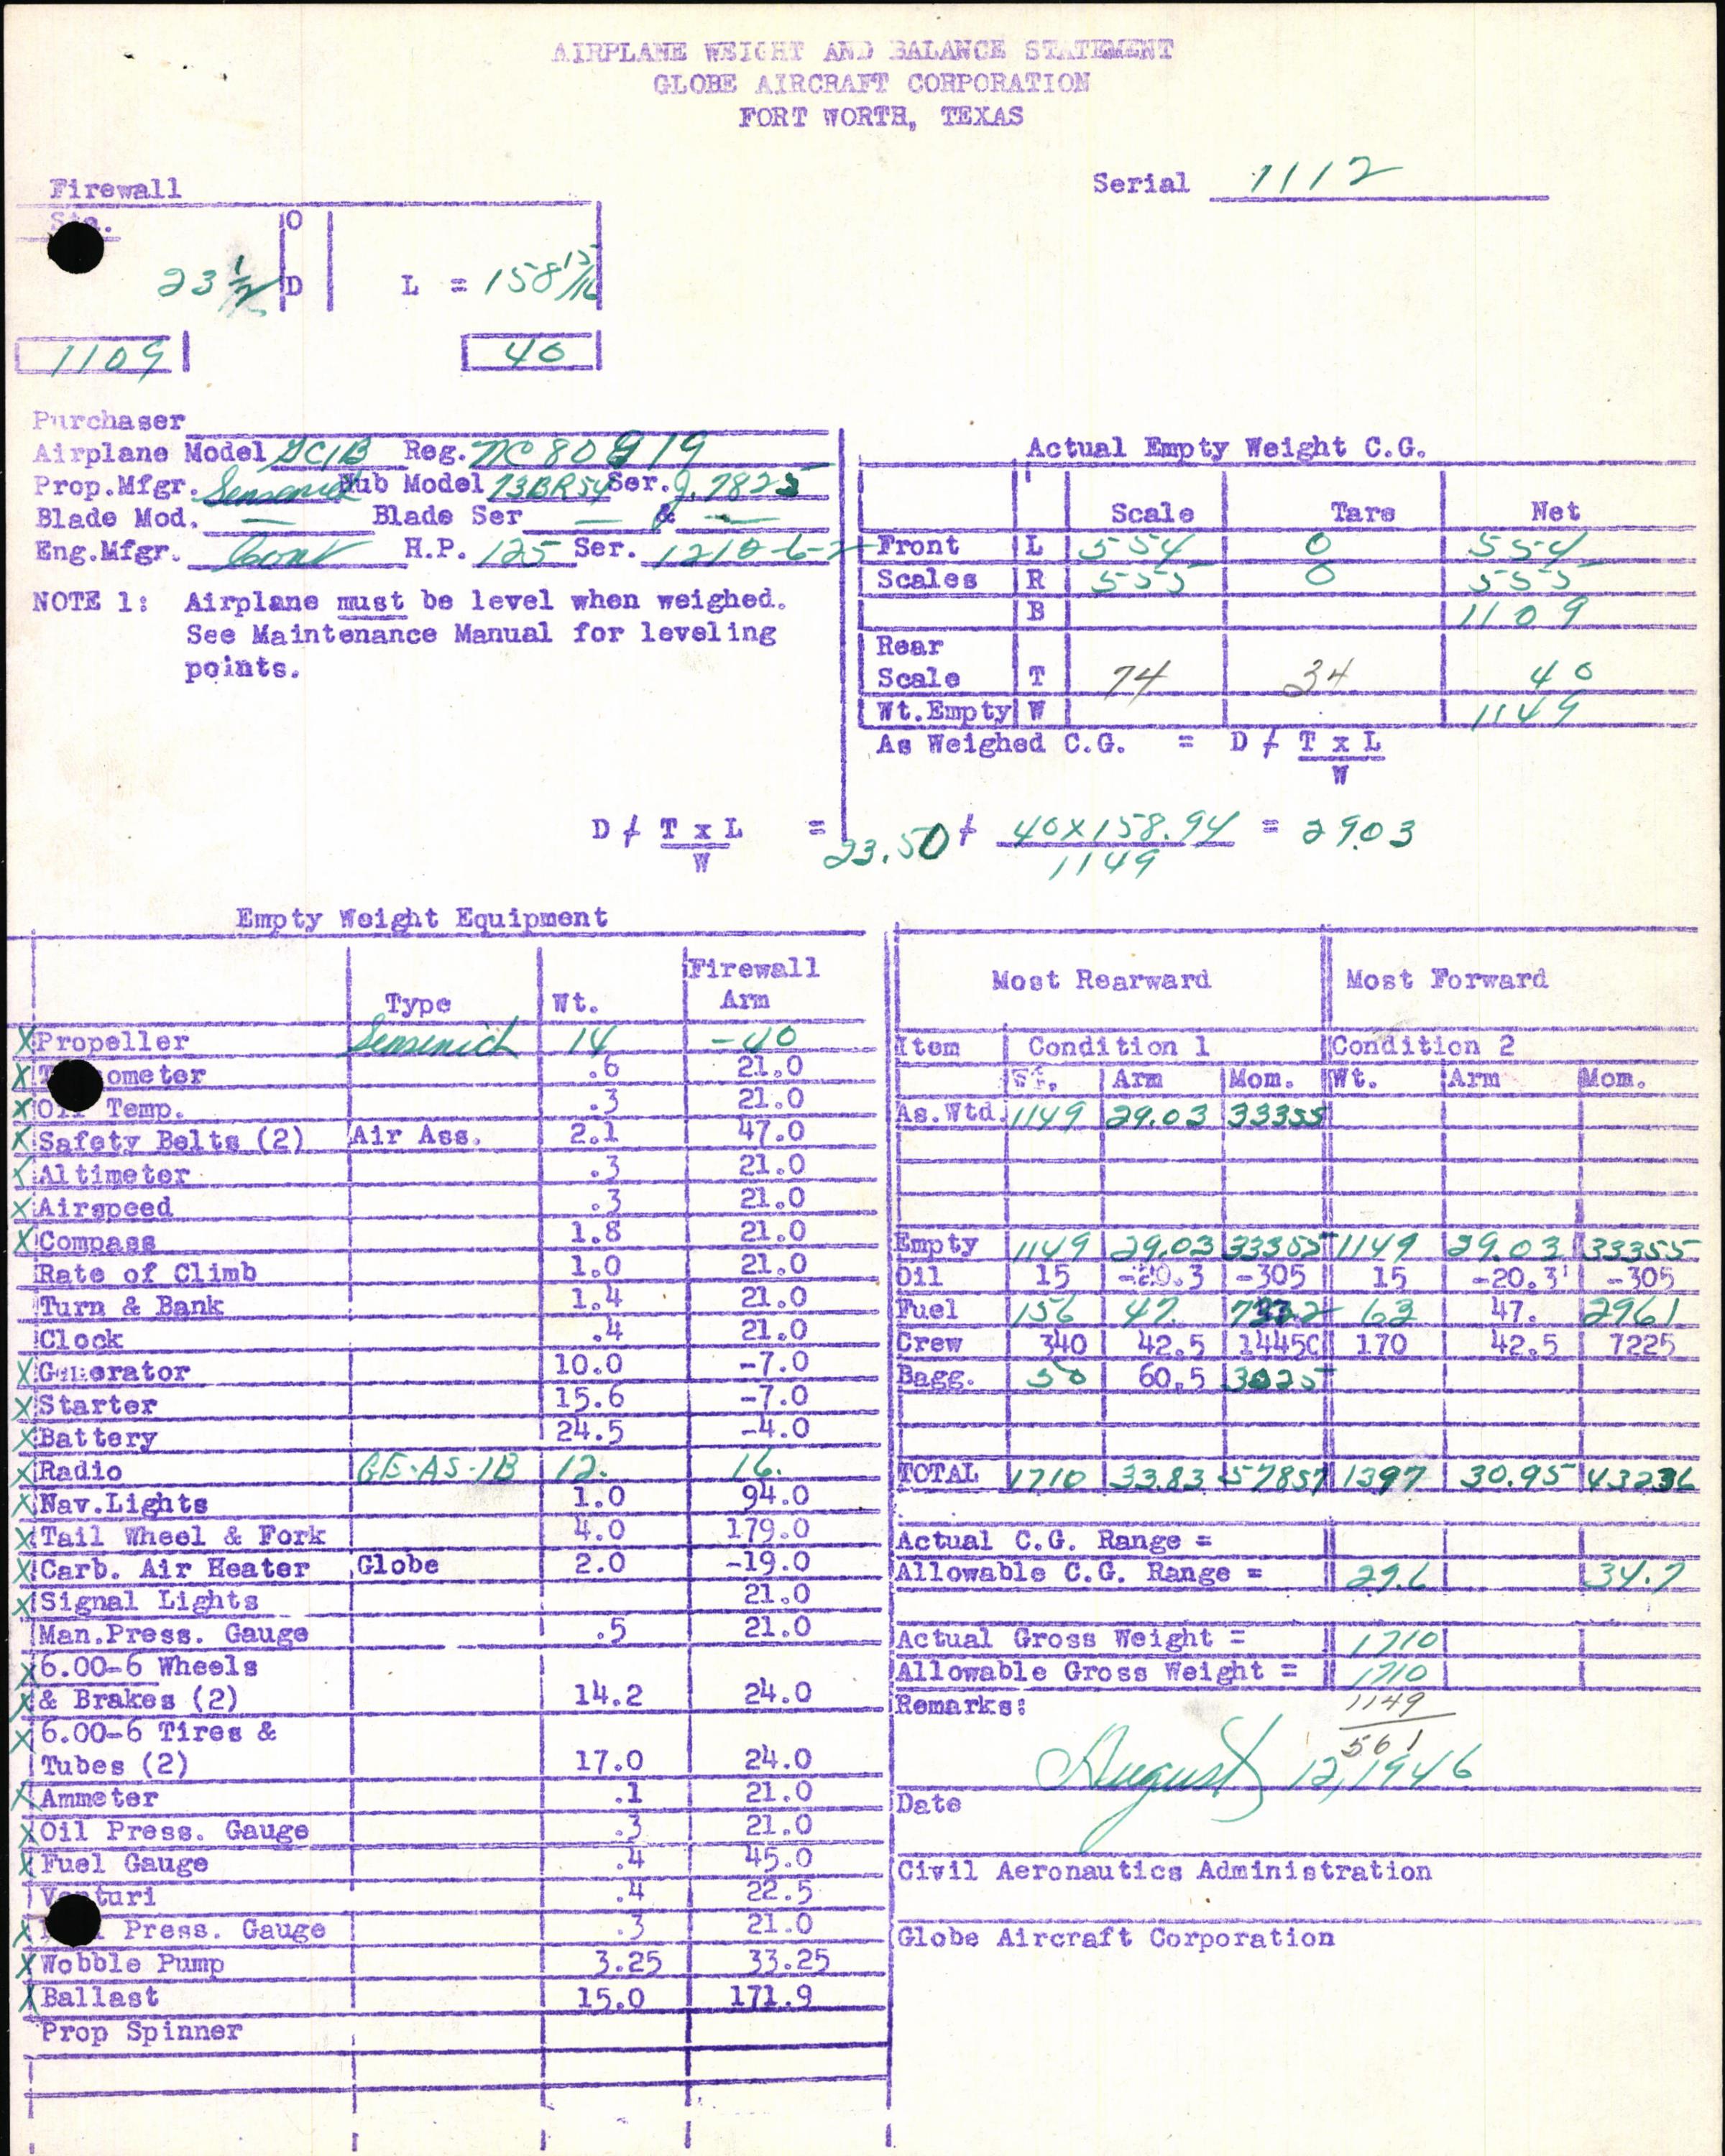 AIRPLANE WEIGHT AND BALANCE STATEMENT
GLOBE AIRCRAFT CORPORATION
FORT WORTH, TEXAS
Serial 1112
Firewall
Sta.
O
23 1/2 D L = 158 15/16
1109 40
Purchaser
Airplane Model GC1B Reg. NC80919
Prop.Mfgr. Sensenich Hub Model 73BR54 Ser. 7825
Blade Mod. — Blade Ser — & —
Eng.Mfgr. Cont H.P. 125 Ser.
NOTE 1: Airplane must be level when weighed.
See Maintenance Manual for leveling
points.
Actual Empty Weight C.G.
Scale Tare Net
Front L 554 0 554
Scales R 555 0 555
B 1109
Rear
Scale T 74 34 40
Wt.Empty W 1149
As Weighed C.G. = D + T x L
W
D + T x L = 23.50 + 40x158.94 = 29.03
W 1149
Empty Weight Equipment
Type Wt. Firewall Arm
X Propeller Sensenich 14 -40
X ometer .6 21.0
X Oil Temp. .3 21.0
X Safety Belts (2) Air Ass. 2.1 47.0
X Altimeter .3 21.0
X Airspeed .3 21.0
X Compass 1.8 21.0
Rate of Climb 1.0 21.0
Turn & Bank 1.4 21.0
Clock .4 21.0
X Generator 10.0 -7.0
X Starter 15.6 -7.0
X Battery 24.5 -4.0
X Radio GE-AS-1B 12. 16.
X Nav.Lights 1.0 94.0
X Tail Wheel & Fork 4.0 179.0
X Carb. Air Heater Globe 2.0 -19.0
X Signal Lights 21.0
Man.Press. Gauge .5 21.0
X 6.00-6 Wheels
X & Brakes (2) 14.2 24.0
X 6.00-6 Tires &
Tubes (2) 17.0 24.0
X Ammeter .1 21.0
X Oil Press. Gauge .3 21.0
X Fuel Gauge .4 45.0
Venturi .4 22.5
X Press. Gauge .3 21.0
X Wobble Pump 3.25 33.25
X Ballast 15.0 171.9
Prop Spinner
Most Rearward Most Forward
Item Condition 1 Condition 2
Wt. Arm Mom. Wt. Arm Mom.
As.Wtd. 1149 29.03 33355
Empty 1149 29.03 33355 1149 29.03 33355
Oil 15 -20.3 -305 15 -20.3 -305
Fuel 156 47. 7332 63 47. 2961
Crew 340 42.5 14450 170 42.5 7225
Bagg. 50 60.5 3025
TOTAL 1710 33.83 57857 1397 30.95 43236
Actual C.G. Range =
Allowable C.G. Range = 29.6 34.7
Actual Gross Weight = 1710
Allowable Gross Weight = 1710
Remarks: 1149
561
August 12, 1946
Date
Civil Aeronautics Administration
Globe Aircraft Corporation